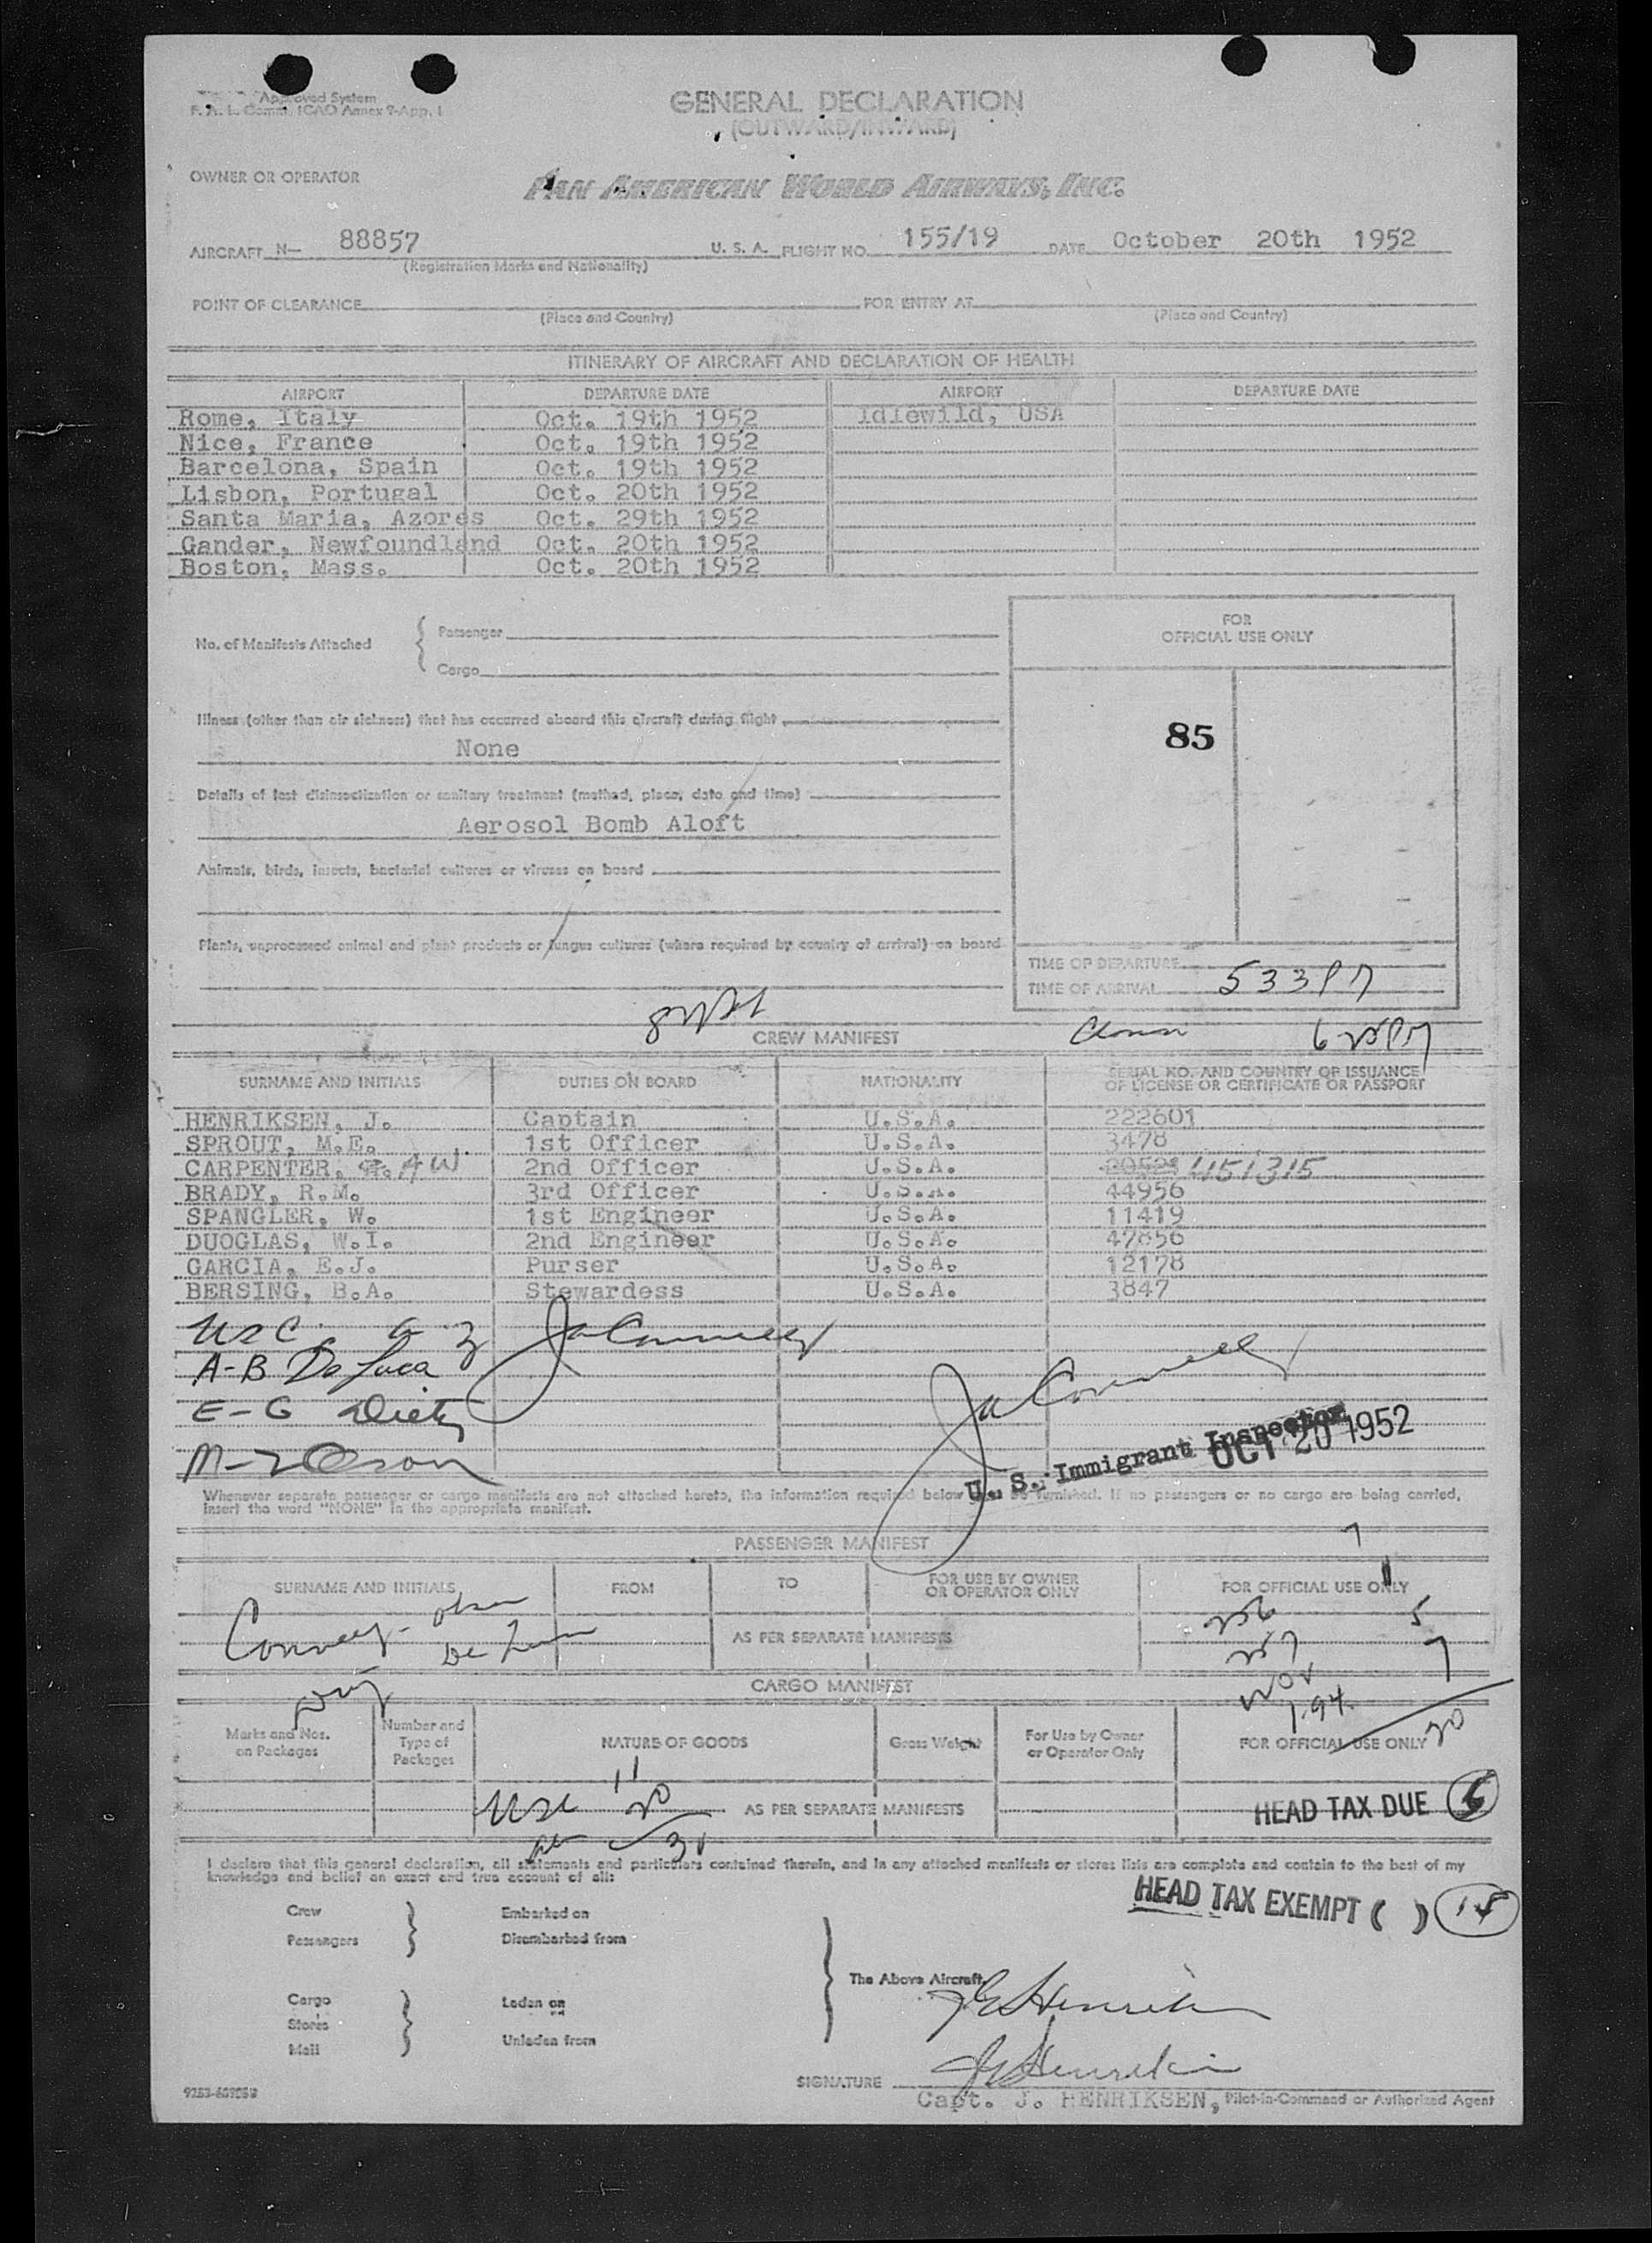 Approved System
F. A. L. Comm. ICAO Annex 9-App. 1
GENERAL DECLARATION
(OUTWARD/INWARD)
OWNER OR OPERATOR
PAN AMERICAN WORLD AIRWAYS, INC.
AIRCRAFT N— 88857 U. S. A. FLIGHT NO. 155/19 DATE October 20th 1952
(Registration Marks and Nationality)
POINT OF CLEARANCE FOR ENTRY AT
(Place and Country) (Place and Country)
ITINERARY OF AIRCRAFT AND DECLARATION OF HEALTH
AIRPORT DEPARTURE DATE AIRPORT DEPARTURE DATE
Rome, Italy Oct. 19th 1952 Idlewild, USA
Nice, France Oct. 19th 1952
Barcelona, Spain Oct. 19th 1952
Lisbon, Portugal Oct. 20th 1952
Santa Maria, Azores Oct. 29th 1952
Gander, Newfoundland Oct. 20th 1952
Boston, Mass. Oct. 20th 1952
No. of Manifests Attached
Passenger
Cargo
FOR
OFFICIAL USE ONLY
85
Illness (other than air sickness) that has occurred aboard this aircraft during flight
None
Details of last disinsectization or sanitary treatment (method, place, date and time)
Aerosol Bomb Aloft
Animals, birds, insects, bacterial cultures or viruses on board
Plants, unprocessed animal and plant products or fungus cultures (where required by country of arrival) on board
TIME OF DEPARTURE
TIME OF ARRIVAL 533PM
CREW MANIFEST
SURNAME AND INITIALS DUTIES ON BOARD NATIONALITY SERIAL NO. AND COUNTRY OF ISSUANCE
OF LICENSE OR CERTIFICATE OR PASSPORT
HENRIKSEN, J. Captain U.S.A. 222601
SPROUT, M.E. 1st Officer U.S.A. 3478
CARPENTER, A W. 2nd Officer U.S.A. 4151315
BRADY, R.M. 3rd Officer U.S.A. 44956
SPANGLER, W. 1st Engineer U.S.A. 11419
DUOGLAS, W.I. 2nd Engineer U.S.A. 47856
GARCIA, E.J. Purser U.S.A. 12178
BERSING, B.A. Stewardess U.S.A. 3847
A-B De Luca
E-G Dietz
U. S. Immigrant Inspector
OCT 20 1952
Whenever separate passenger or cargo manifests are not attached hereto, the information required below must be furnished. If no passengers or no cargo are being carried,
insert the word "NONE" in the appropriate manifest.
PASSENGER MANIFEST
SURNAME AND INITIALS FROM TO FOR USE BY OWNER
OR OPERATOR ONLY FOR OFFICIAL USE ONLY
AS PER SEPARATE MANIFESTS
CARGO MANIFEST
Marks and Nos.
on Packages
Number and
Type of
Packages
NATURE OF GOODS
Gross Weight
For Use by Owner
or Operator Only
FOR OFFICIAL USE ONLY
AS PER SEPARATE MANIFESTS
HEAD TAX DUE
I declare that this general declaration, all statements and particulars contained therein, and in any attached manifests or stores lists are complete and contain to the best of my
knowledge and belief an exact and true account of all:
HEAD TAX EXEMPT ( )
Crew
Passengers
Embarked on
Disembarked from
The Above Aircraft
Cargo
Stores
Mail
Laden on
Unladen from
SIGNATURE
Capt. J. HENRIKSEN, Pilot-in-Command or Authorized Agent